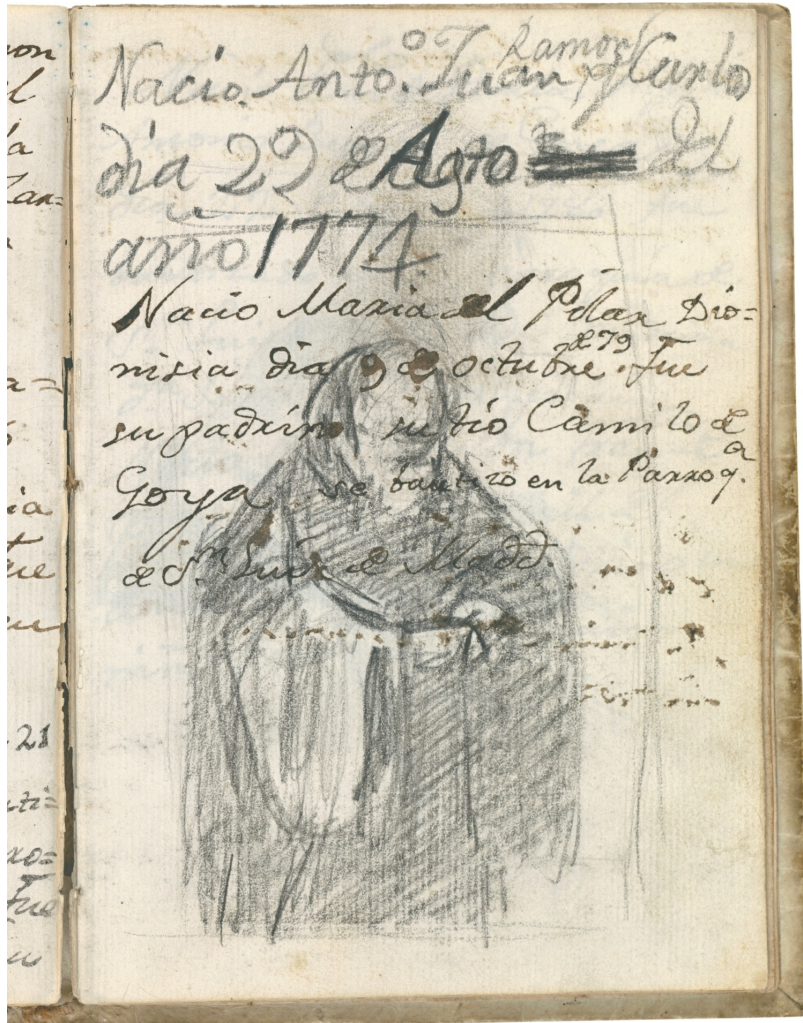 Ramon
Nacio Anto.º Juan, y Carlos
dia 29 de Agto del
año 1774
Nacio Maria del Pilar Dio=
nisia dia 9 de octubre de 79. fue
su padrino su tio Camilo de
Goya se bautizo en la Parroq.a
de Sn Luis de Madd.